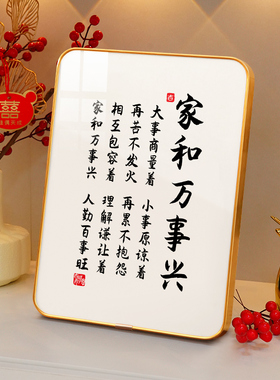 家和万事兴
大事商量着 小事原谅着
再苦不发火 再累不抱怨
相互包容着 理解谦让着
家和万事兴 人勤百事旺
囍